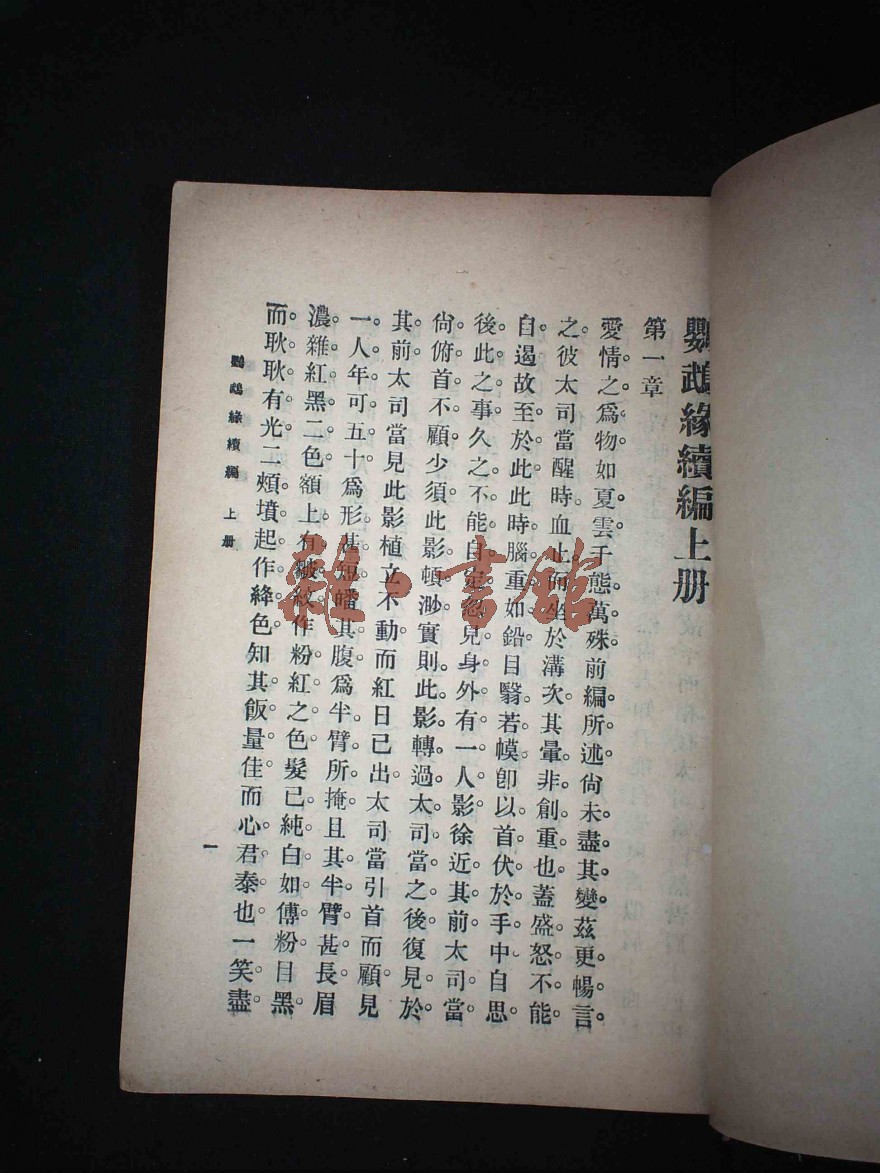 鸚鵡緣續編上册
第一章
愛情之爲物。如夏雲。千態萬殊。前編所述。尙未盡其變。茲更暢言
之。彼太司當醒時。血止而坐於溝次。其暈非創重也。蓋盛怒不能
自遏。故至於此。此時腦重如鉛。目翳若幙。卽以首伏於手中。自思
後此之事。久之不能自定。忽見身外有一人影。徐近其前。太司當
尙俯首不顧。少須。此影頓渺。實則此影轉過太司當之後。復見於
其前。太司當見此影植立不動。而紅日已出。太司當引首而顧。見
一人。年可五十。爲形甚短。皤其腹。爲半臂所掩。且其半臂甚長。眉
濃雜紅黑二色。額上有皺紋。作粉紅之色。髮已純白如傅粉。目黑
而耿耿有光。二頰墳起作絳色。知其飯量佳而心君泰也。一笑。盡
鸚鵡緣續編 上册
一
雜·書館